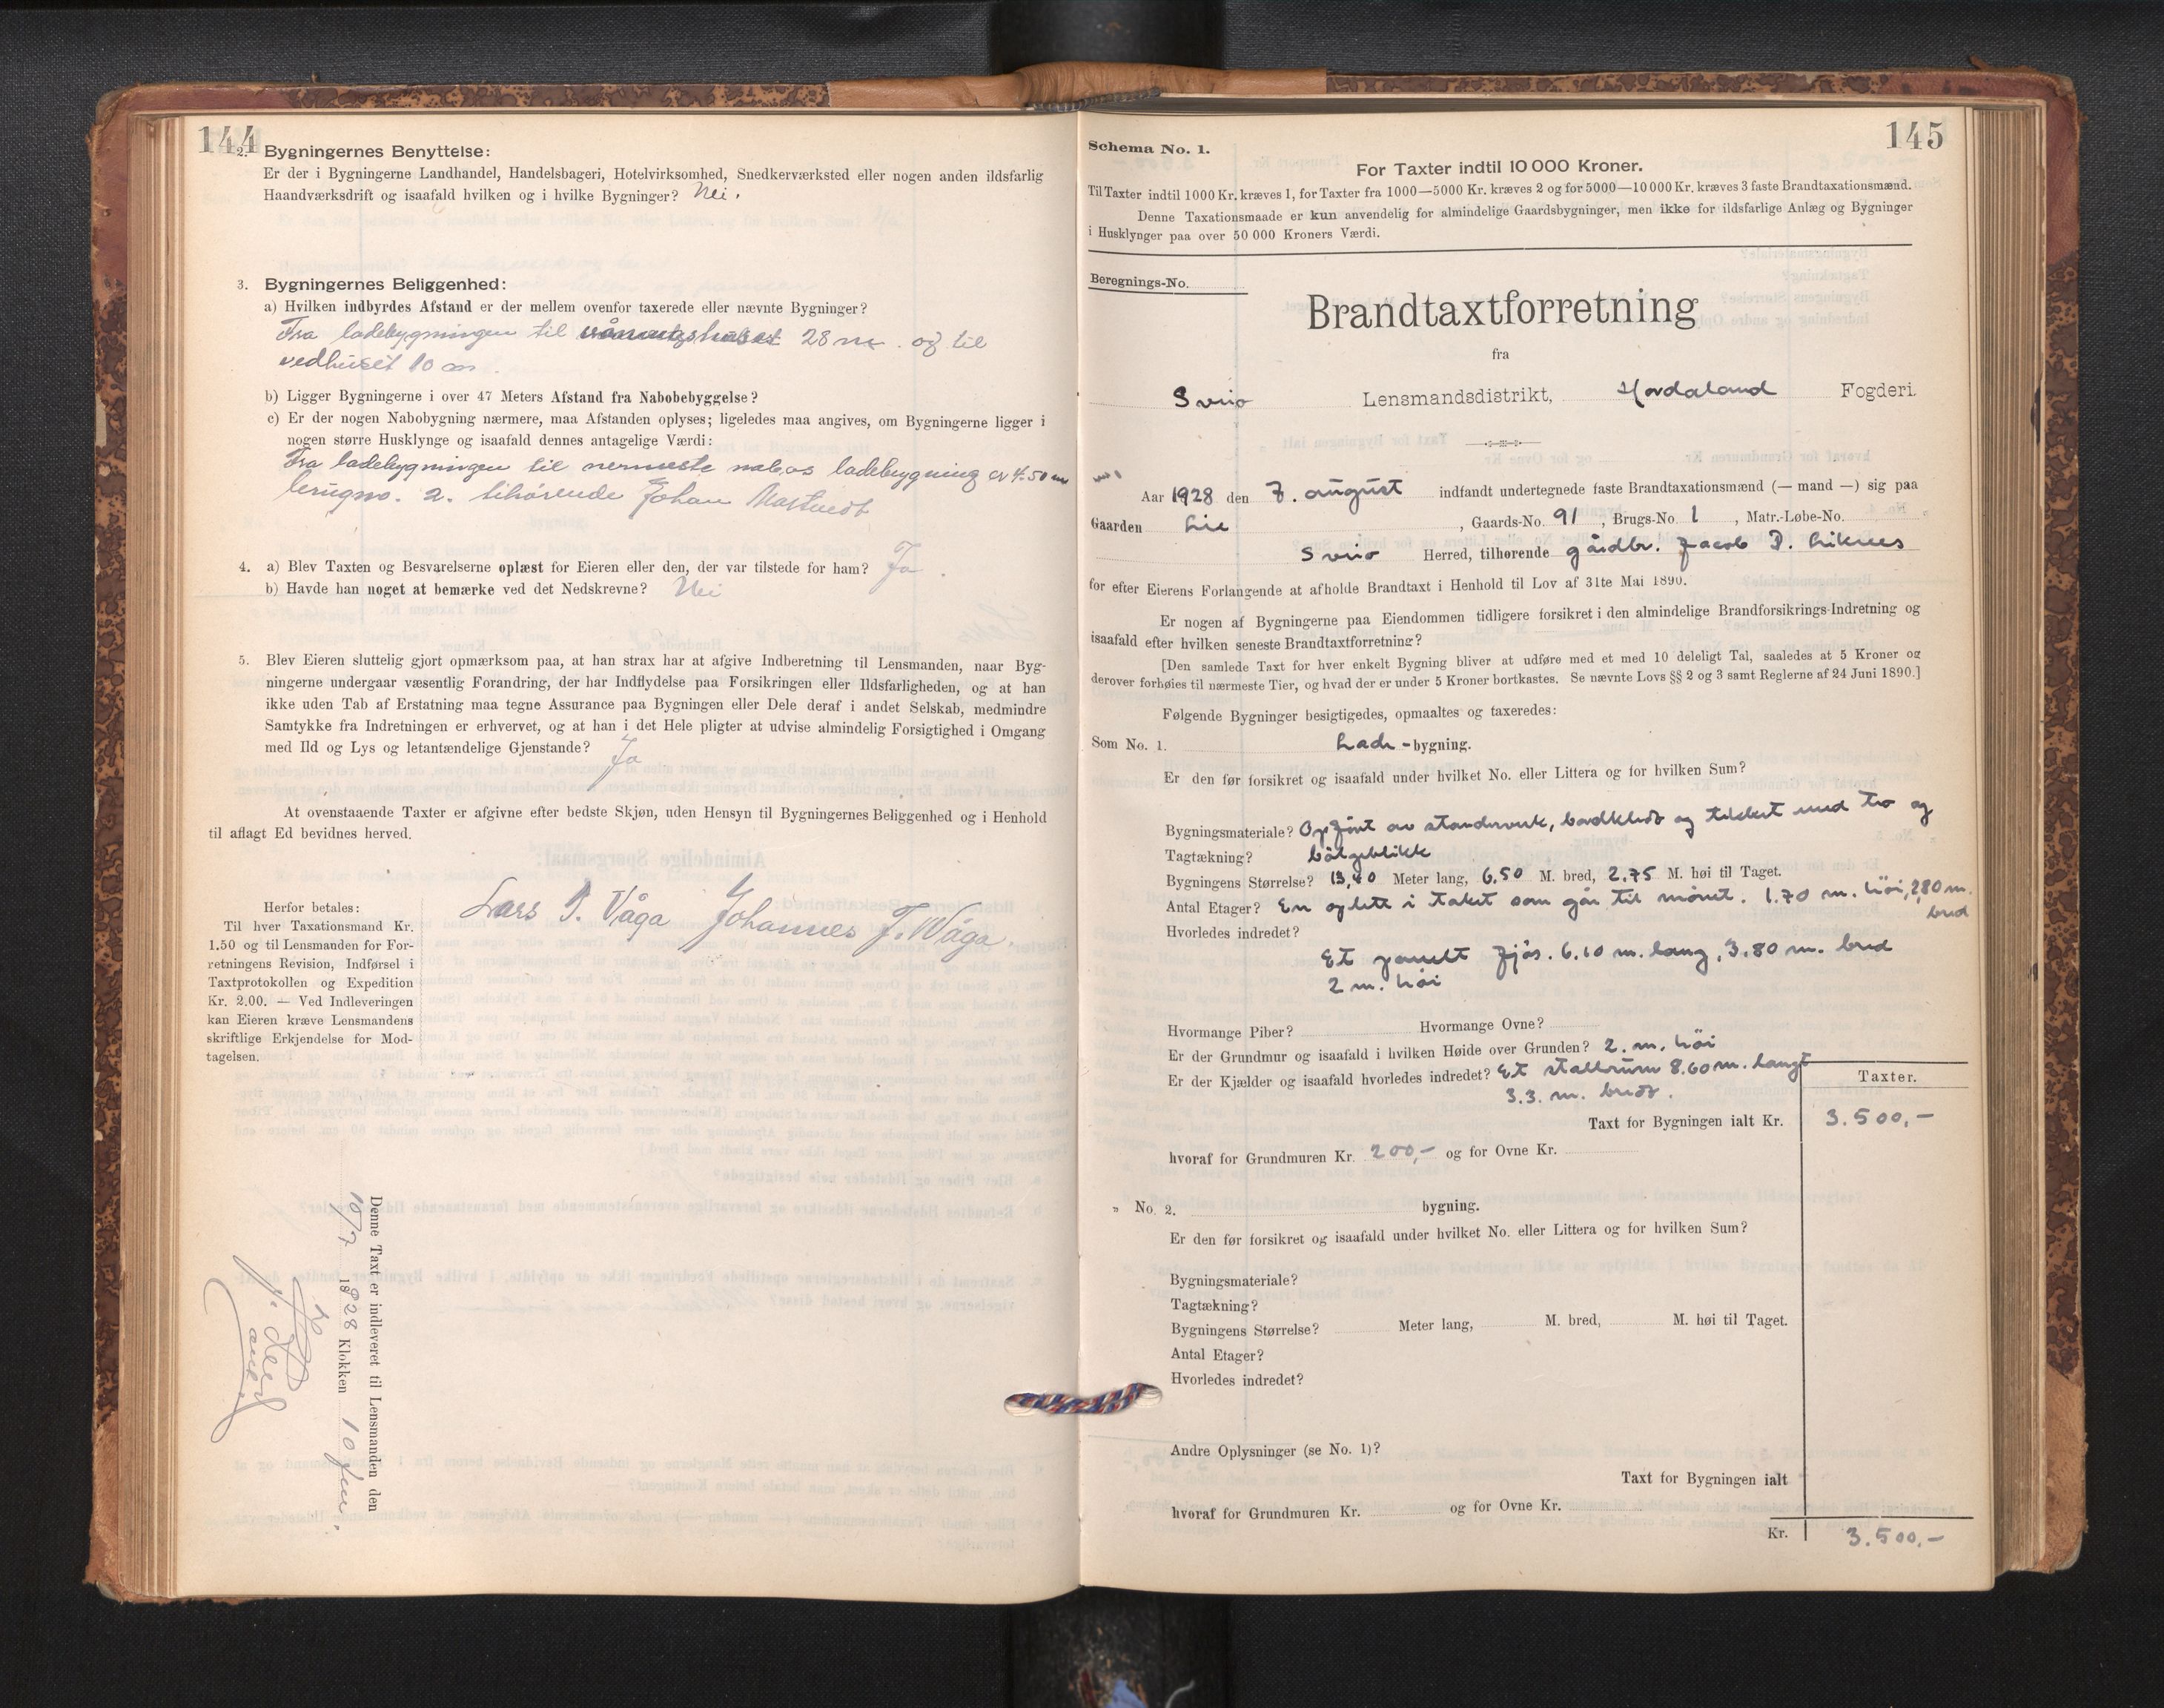 144
2. Bygningernes Benyttelse:
Er der i Bygningerne Landhandel, Handelsbageri, Hotelvirksomhed, Snedkerværksted eller nogen anden ildsfarlig
Haandværksdrift og isaafald hvilken og i hvilke Bygninger? Nei.
3. Bygningernes Beliggenhed:
a) Hvilken indbyrdes Afstand er der mellem ovenfor taxerede eller nævnte Bygninger?
Fra ladebygningen til våningshuset 28 m. og til
vedhuset 10 m.
b) Ligger Bygningerne i over 47 Meters Afstand fra Nabobebyggelse?
c) Er der nogen Nabobygning nærmere, maa Afstanden oplyses; ligeledes maa angives, om Bygningerne ligger i
nogen større Husklynge og isaafald dennes antagelige Værdi:
Fra ladebygningen til nermeste nabos ladebygning er 4.50 m
brugno. 2. tilhørende Johan
4. a) Blev Taxten og Besvarelserne oplæst for Eieren eller den, der var tilstede for ham? Ja.
b) Havde han noget at bemærke ved det Nedskrevne? Nei
5. Blev Eieren sluttelig gjort opmærksom paa, at han strax har at afgive Indberetning til Lensmanden, naar Byg-
ningerne undergaar væsentlig Forandring, der har Indflydelse paa Forsikringen eller Ildsfarligheden, og at han
ikke uden Tab af Erstatning maa tegne Assurance paa Bygningen eller Dele deraf i andet Selskab, medmindre
Samtykke fra Indretningen er erhvervet, og at han i det Hele pligter at udvise almindelig Forsigtighed i Omgang
med Ild og Lys og letantændelige Gjenstande? Ja
At ovenstaaende Taxter er afgivne efter bedste Skjøn, uden Hensyn til Bygningernes Beliggenhed og i Henhold
til aflagt Ed bevidnes herved.
Lars P. Våga Johannes J. Våga.
Herfor betales:
Til hver Taxationsmand Kr.
1.50 og til Lensmanden for For-
retningens Revision, Indførsel i
Taxtprotokollen og Expedition
Kr. 2.00. — Ved Indleveringen
kan Eieren kræve Lensmandens
skriftlige Erkjendelse for Mod-
tagelsen.
Denne Taxt er indleveret til Lensmanden den
10/7 1928 Klokken 10 fm.
145
Schema No. 1.
For Taxter indtil 10 000 Kroner.
Til Taxter indtil 1000 Kr. kræves 1, for Taxter fra 1000—5000 Kr. kræves 2 og for 5000—10 000 Kr. kræves 3 faste Brandtaxationsmænd.
Denne Taxationsmaade er kun anvendelig for almindelige Gaardsbygninger, men ikke for ildsfarlige Anlæg og Bygninger
i Husklynger paa over 50 000 Kroners Værdi.
Beregnings-No.
Brandtaxtforretning
fra
Sveio Lensmandsdistrikt, Hordaland Fogderi.
Aar 1928 den 7. august indfandt undertegnede faste Brandtaxationsmænd (— mand —) sig paa
Gaarden Lie, Gaards-No. 91, Brugs-No. 1, Matr.-Løbe-No.
Sveio Herred, tilhørende gårdbr. Jacob P. Liknes
for efter Eierens Forlangende at afholde Brandtaxt i Henhold til Lov af 31te Mai 1890.
Er nogen af Bygningerne paa Eiendommen tidligere forsikret i den almindelige Brandforsikrings-Indretning og
isaafald efter hvilken seneste Brandtaxtforretning?
[Den samlede Taxt for hver enkelt Bygning bliver at udføre med et med 10 deleligt Tal, saaledes at 5 Kroner og
derover forhøies til nærmeste Tier, og hvad der er under 5 Kroner bortkastes. Se nævnte Lovs §§ 2 og 3 samt Reglerne af 24 Juni 1890.]
Følgende Bygninger besigtigedes, opmaaltes og taxeredes:
Som No. 1. Lade-bygning.
Er den før forsikret og isaafald under hvilket No. eller Littera og for hvilken Sum?
Bygningsmateriale? Opført av standerverk, bordkledt og tekket med tro og
Tagtækning? bølgeblikk
Bygningens Størrelse? 13,40 Meter lang, 6,50 M. bred, 2.75 M. høi til Taget.
Antal Etager? En oplett i taket som går til mønet. 1.70 m. höi, 2,80 m.
bred
Hvorledes indredet?
Et panelt fjøs. 6.10 m. lang, 3.80 m. bred
2 m. höi
Hvormange Piber? Hvormange Ovne?
Er der Grundmur og isaafald i hvilken Høide over Grunden? 2. m. höi
Er der Kjælder og isaafald hvorledes indredet? Et stallrum 8.60 m. langt
3.3. m. bredt.
Taxter.
Taxt for Bygningen ialt Kr. 3.500,-
hvoraf for Grundmuren Kr. 200,- og for Ovne Kr.
" No. 2. bygning.
Er den før forsikret og isaafald under hvilket No. eller Littera og for hvilken Sum?
Bygningsmateriale?
Tagtækning?
Bygningens Størrelse? Meter lang, M. bred, M. høi til Taget.
Antal Etager?
Hvorledes indredet?
Andre Oplysninger (se No. 1)?
Taxt for Bygningen ialt
hvoraf for Grundmuren Kr. og for Ovne Kr.
Kr. 3.500,-